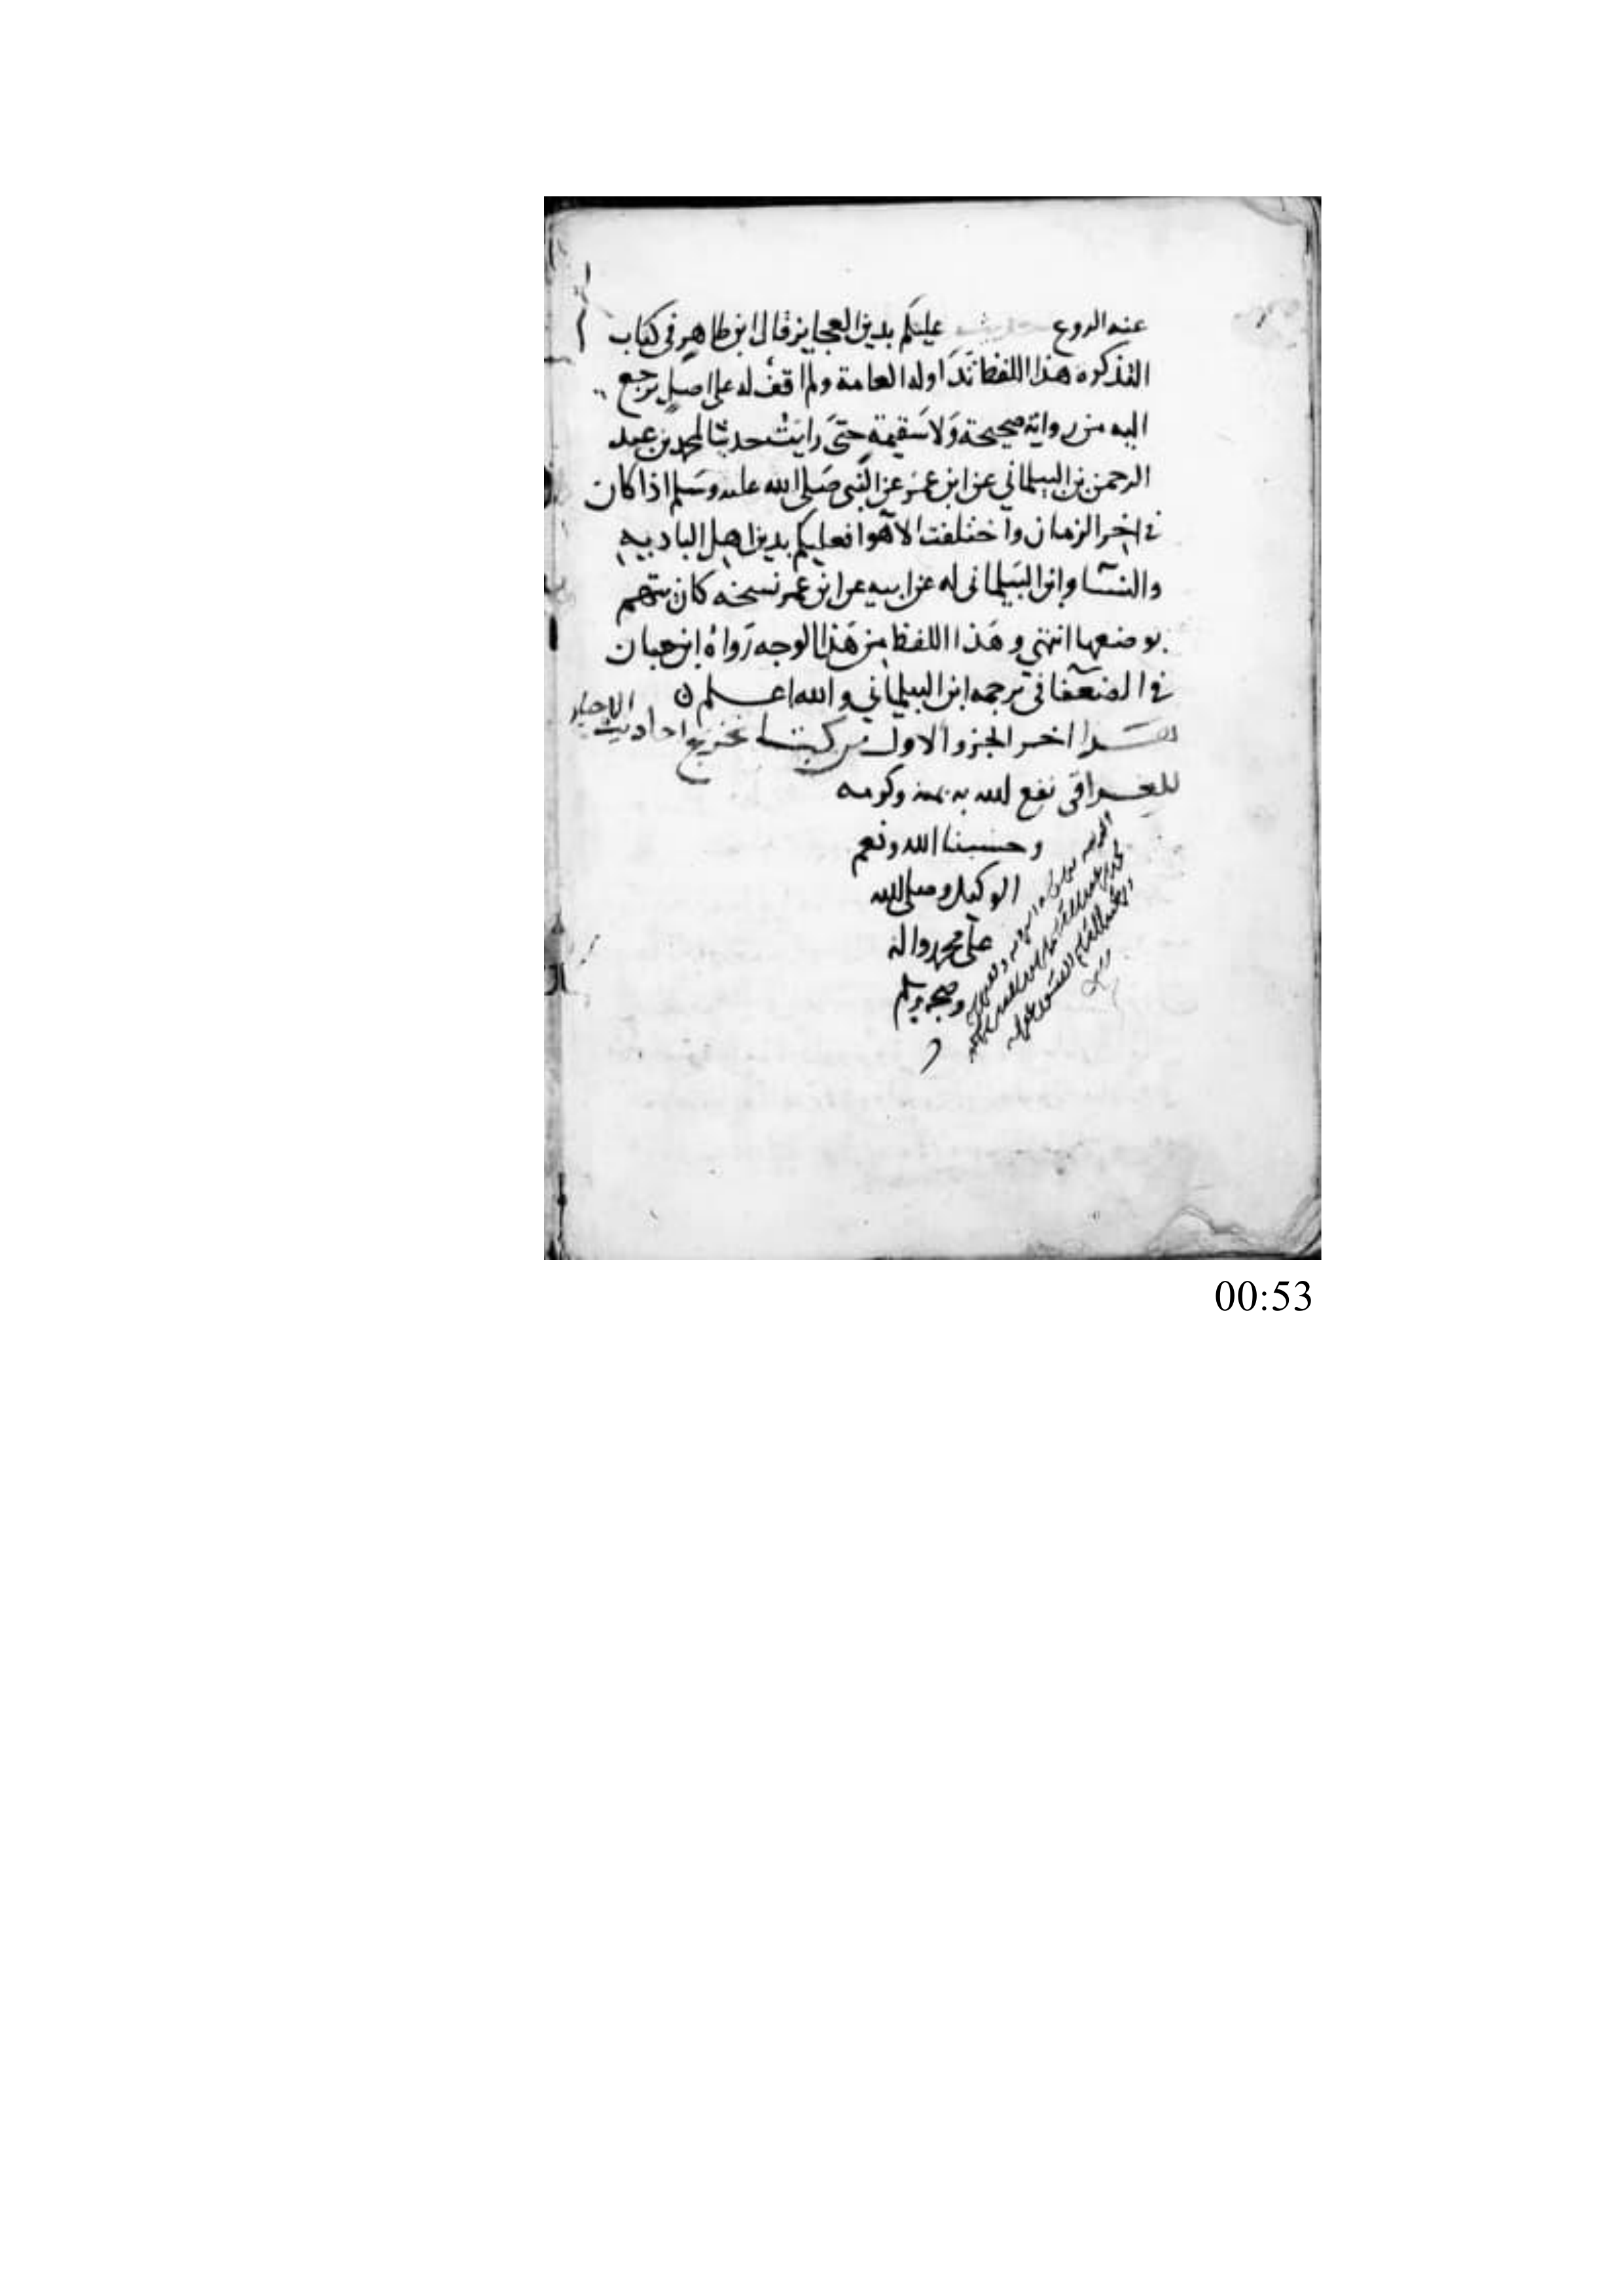 عنه الروع حديث عليكم بدين العجايز قال ابن طاهر في كتاب
التذكره هذا اللفظ تداوله العامة ولم اقف له على اصل يرجع
اليه من رواية صحيحة ولا سقيمة حتى رايت حديثا لمحمد بن عبد
الرحمن بن البيلماني عن ابن عمر عن النبي صلى الله عليه وسلم اذا كان
في اخر الزمان واختلفت الاهوا فعليكم بدين اهل الباديه
والنسا وابن البيلماني له عن ابيه عن ابن عمر نسخه كان يتهم
بوضعها انتهى وهذا اللفظ من هذا الوجه رواه ابن حبان
في الضعفا في ترجمه ابن البيلماني والله اعلم
هذا اخر الجزو الاول من كتاب تخريج احاديث الاحيا
للعراقي نفع الله به بمنه وكرمه
وحسبنا الله ونعم
الوكيل وصلى الله
على محمد واله
وصحبه وسلم
00:53